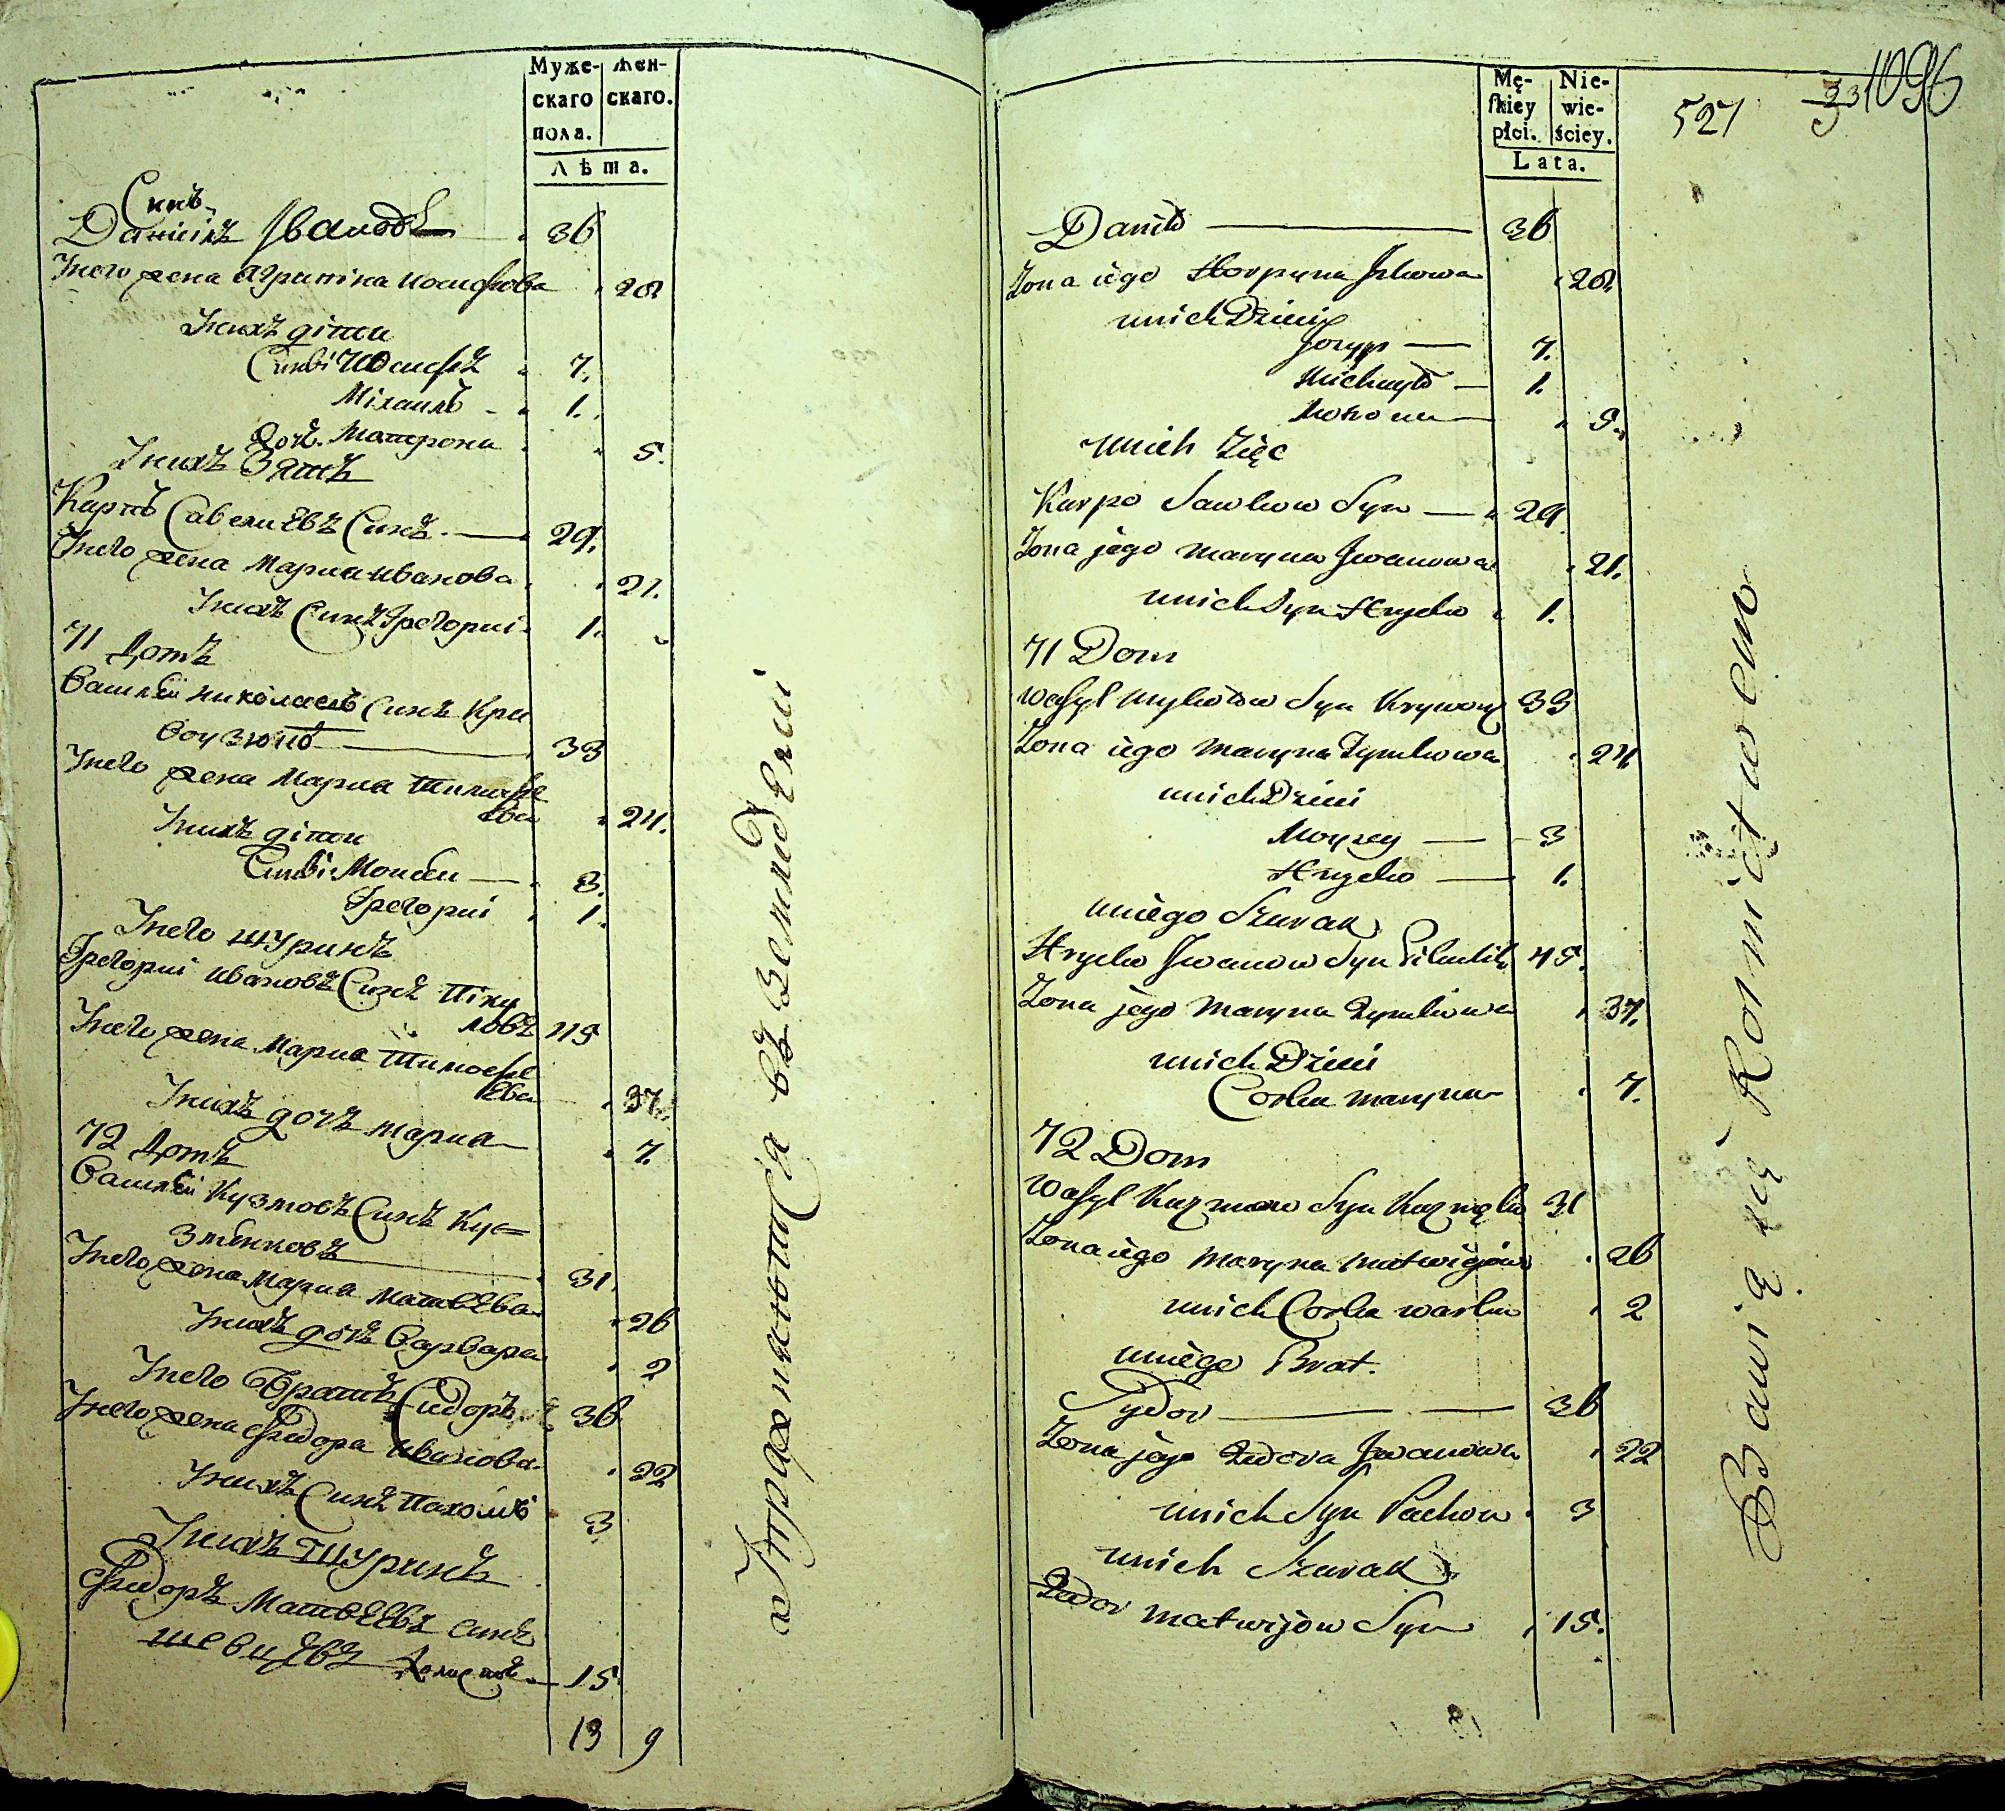 Муже- жен-
скаго скаго.
пола.
Лѣта.
Синъ
Даниїлъ Ивановъ 36
Унего жена Агрипіна Иосифова 28
Унихъ діти
Сині Иосифъ 7.
Міхаилъ 1.
доч. Матрона 5.
Унихъ Зять
Карпъ Савелиевъ Синъ 29.
Унего жена Мариа Иванова 21.
Унихъ Синъ Григориі 1.
71 Домъ
Василѣй Николаевъ Синъ Кри
воузюпъ 33
Унего жена Мариа Тимофе
ева 24.
Унихъ діти
Сині Моисей 3.
Григориі 1.
Унего шуринъ
Григориі Ивановъ Синъ Піку
ловъ 45
Унего жена Мариа Тимофе
ева 37.
Унихъ дочъ Мариа 7.
72 Домъ
Василѣй Кузмовъ Синъ Ку=
зменковъ 31.
Унего жена Мариа Матвѣева 26
Унихъ дочъ Варвара 2
Унего Братъ Сидоръ 36
Унего жена Федора Иванова 22
Унихъ Синъ Пахомъ 3
Унихъ Шуринъ
Федоръ Матвѣевъ синъ
Шевцевъ 15.
13 9
а Упражняются въ Земледелиі
Mę- Nie-
skiey wie-
płci. ściey.
Lata.
527 1096
Daniło 36
Żona iego Horpyna Jzkowa 28
unich Dzieci
Jozyp 7.
Michayło 1.
Motrona 5.
unich Zięć
Karpo Sawkow Syn 29
Żona jego Maryna Jwanowa 21.
unich Syn Hryćko 1.
71 Dom
Wasyl Mykołow Syn Krywouz 33
Żona iego Maryna Tymkowa 24
unich Dzieci
Moysey 3
Hryćko 1.
uniego Szurak
Hryćko Jwanow Syn Pikulik 45.
Żona jego Maryna Tymkowa 37.
unich Dzieci
Corka Maryna 7.
72 Dom
Wasyl Kuzmow Syn Kuzmęko 31
Żona iego Maryna Matwiejowa 26
unich Corka Warka 2
uniego Brat.
Sydor 36
Żona jego Fedora Jwanowa 22
unich Syn Pachom 3
unich Szurak
Fedor Matwijow Syn 15.
Bawią się Rolnictwem